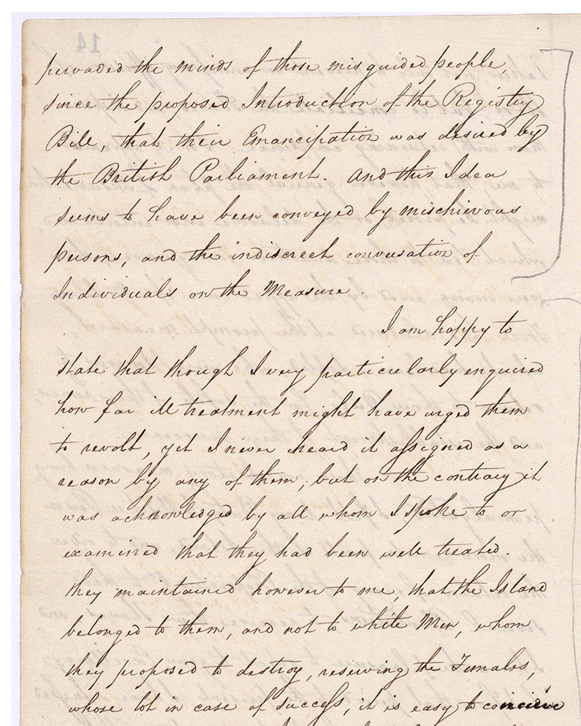 pervaded the minds of those misguided people
since the proposed Introduction of the Registry
Bill, that their Emancipation was desired by
the British Parliament. And this Idea
seems to have been conveyed by mischievous
persons, and the indiscreet conversation of
Individuals on the Measure.
I am happy to
state that though I very particularly enquired
how far ill treatment might have urged them
to revolt, yet I never heard it assigned as a
reason by any of them; but on the contrary it
was acknowledged by all whom I spoke to or
examined that they had been well treated.
they maintained however to me, that the Island
belonged to them, and not to white Men, whom
they proposed to destroy, reserving the Females,
whose lot in case of Success, it is easy to conceive